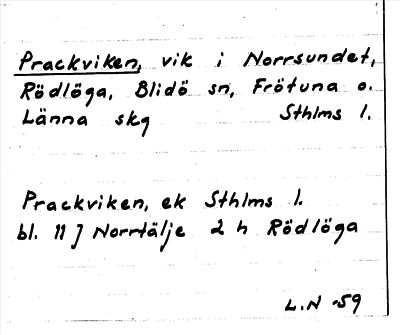 Prackviken, vik i Norrsundet,
Rödlöga, Blidö sn, Frötuna o.
Länna skg Sthlms l.
Prackviken, ek Sthlms l.
bl. 11 J Norrtälje 2 h Rödlöga
L.N -59